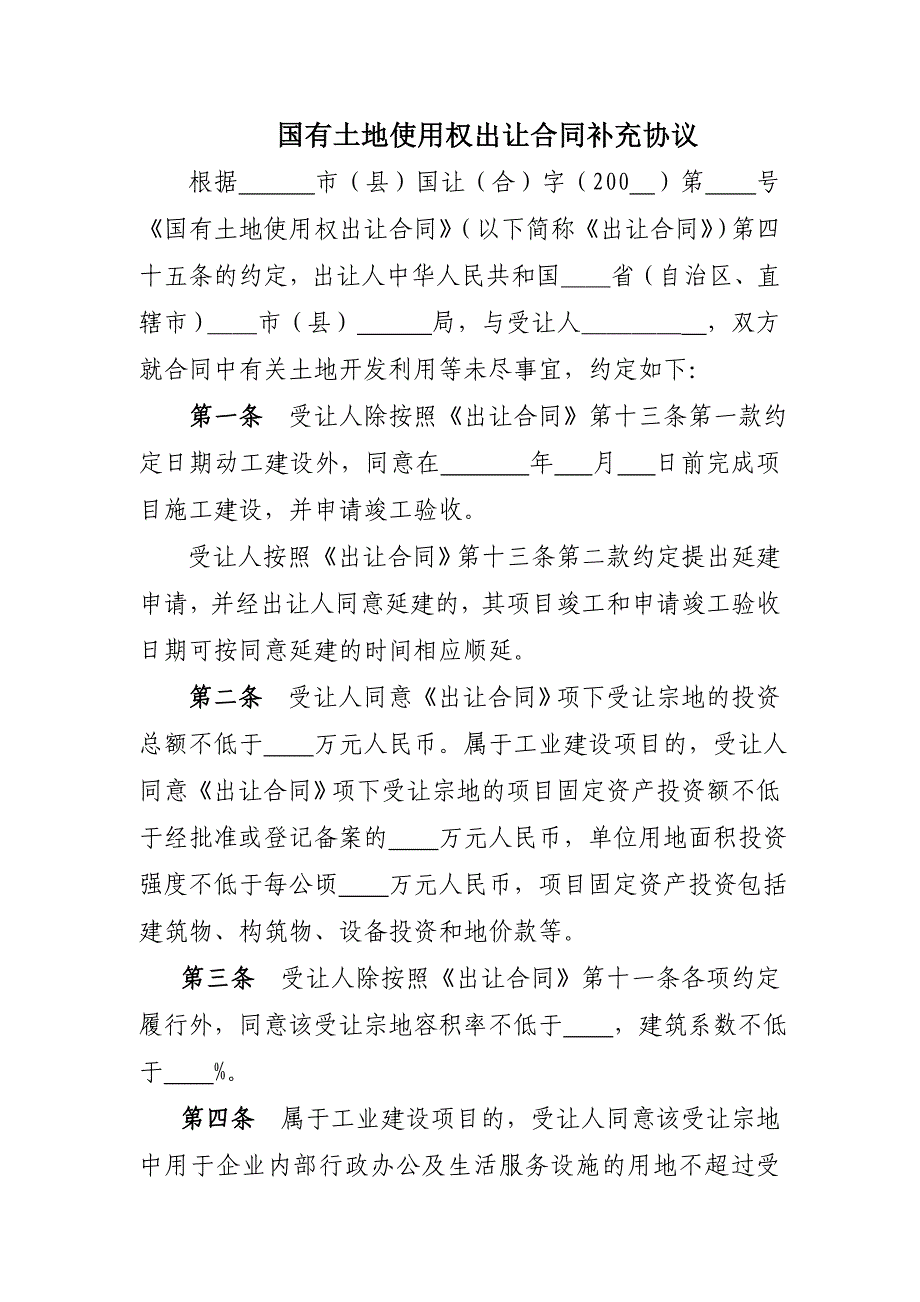 国有土地使用权出让合同补充协议
根据______市（县）国让（合）字（200__）第____号
《国有土地使用权出让合同》（以下简称《出让合同》）第四
十五条的约定，出让人中华人民共和国____省（自治区、直
辖市）____市（县）______局，与受让人__________，双方
就合同中有关土地开发利用等未尽事宜，约定如下：
第一条　受让人除按照《出让合同》第十三条第一款约
定日期动工建设外，同意在_______年___月___日前完成项
目施工建设，并申请竣工验收。
受让人按照《出让合同》第十三条第二款约定提出延建
申请，并经出让人同意延建的，其项目竣工和申请竣工验收
日期可按同意延建的时间相应顺延。
第二条　受让人同意《出让合同》项下受让宗地的投资
总额不低于____万元人民币。属于工业建设项目的，受让人
同意《出让合同》项下受让宗地的项目固定资产投资额不低
于经批准或登记备案的____万元人民币，单位用地面积投资
强度不低于每公顷____万元人民币，项目固定资产投资包括
建筑物、构筑物、设备投资和地价款等。
第三条　受让人除按照《出让合同》第十一条各项约定
履行外，同意该受让宗地容积率不低于____，建筑系数不低
于____%。
第四条　属于工业建设项目的，受让人同意该受让宗地
中用于企业内部行政办公及生活服务设施的用地不超过受